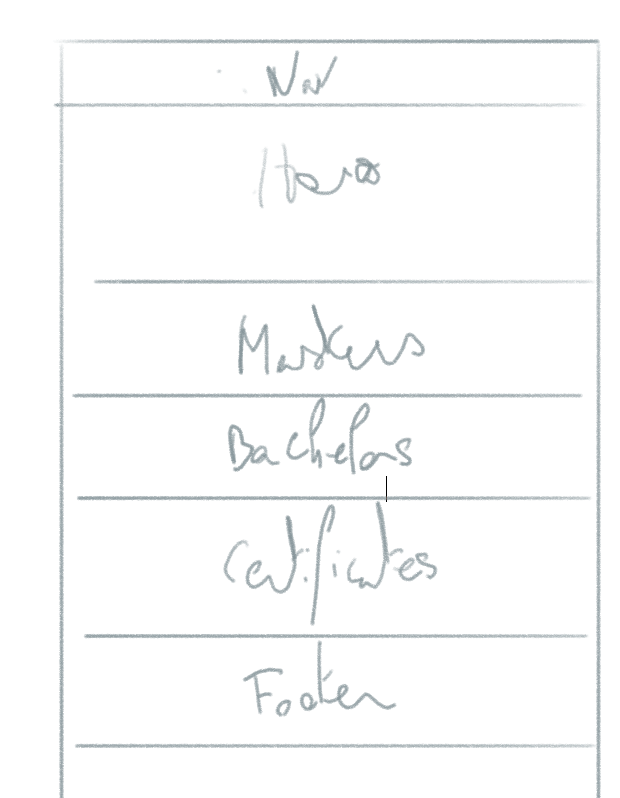 Nav
Hero
Masters
Bachelors
Certificates
Footer